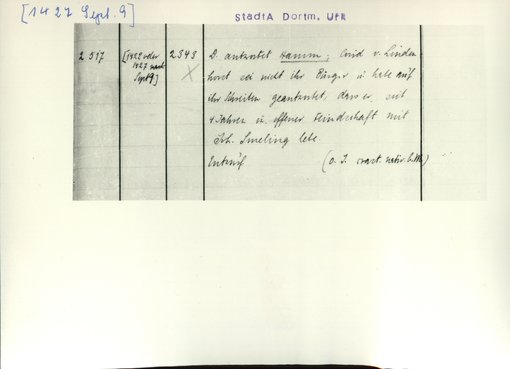 [1427 Sept. 9]
StadtA Dortm. Urk
2517
[1422 oder
1427 nach
Sept 9]
2343
D. antwortet Hamm; Cord v. Linden-
horst sei nicht ihr Bürger u. habe auf
ihr Schreiben geantwortet, dass er seit
4 Jahren in offener Feindschaft mit
Joh. Smeling lebe.
Entwurf
(o. J. crast. nativ. b. M.)